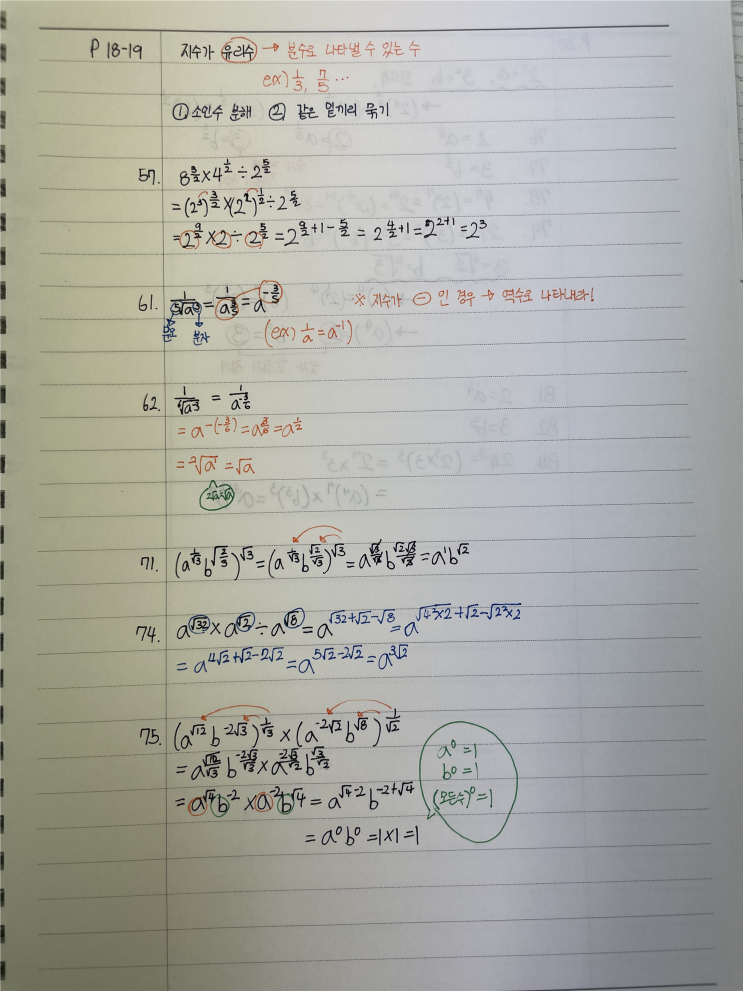 P 18-19 지수가 유리수 → 분수로 나타낼 수 있는 수
ex) 1/3, 7/5 ...
① 소인수 분해 ② 같은 밑끼리 묶기
57. 8^(3/2) × 4^(1/2) ÷ 2^(5/2)
= (2^3)^(3/2) × (2^2)^(1/2) ÷ 2^(5/2)
= 2^(9/2) × 2 ÷ 2^(5/2) = 2^(9/2+1-5/2) = 2^(4/2+1) = 2^(2+1) = 2^3
61. 1/⁵√a^3 = 1/a^(3/5) = a^(-3/5) ※ 지수가 ⊖ 인 경우 → 역수로 나타내라!
분모 분자 (ex) 1/a = a^(-1))
62. 1/⁶√a^(-3) = 1/a^(-3/6)
= a^(-(-3/6)) = a^(3/6) = a^(1/2)
= ²√a^1 = √a
²√a=√a
71. (a^(1/√3) b^(√(2/3)))^√3 = (a^(1/√3) b^(√2/√3))^√3 = a^(√3/√3) b^(√2√3/√3) = a^1 b^√2
74. a^√32 × a^√2 ÷ a^√8 = a^(√32+√2-√8) = a^(√(4^2×2)+√2-√(2^2×2))
= a^(4√2+√2-2√2) = a^(5√2-2√2) = a^(3√2)
75. (a^√12 b^(-2√3))^(1/√3) × (a^(-2√2) b^√8)^(1/√2)
a^0 = 1
b^0 = 1
(모든수)^0 = 1
= a^√4 b^(-2) × a^(-2) b^√4 = a^(√4-2) b^(-2+√4)
= a^0 b^0 = 1×1 = 1